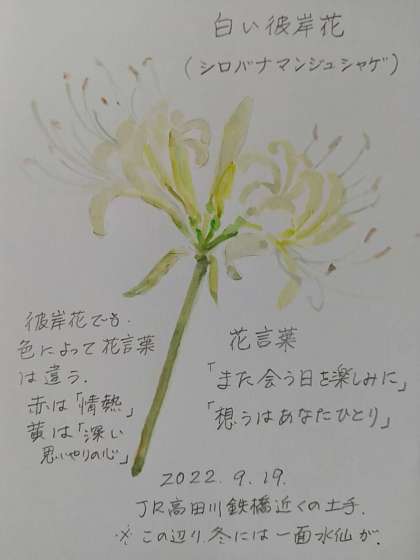 白い彼岸花
(シロバナマンジュシャゲ)
彼岸花でも.
色によって花言葉
は違う.
赤は「情熱」
黄は「深い
思いやりの心」
花言葉
「また会う日を楽しみに」
「想うはあなたひとり」
2022.9.19.
JR高田川鉄橋近くの土手.
※この辺り.冬には一面水仙が.